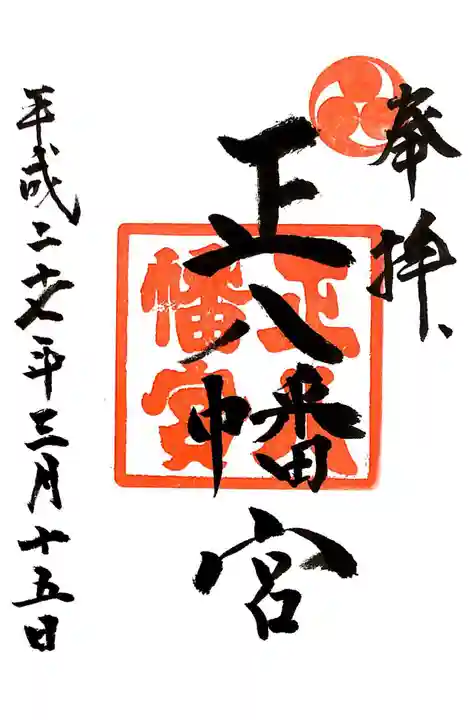 奉拝
正八幡宮
正八
幡宮
平成二十七年三月十五日